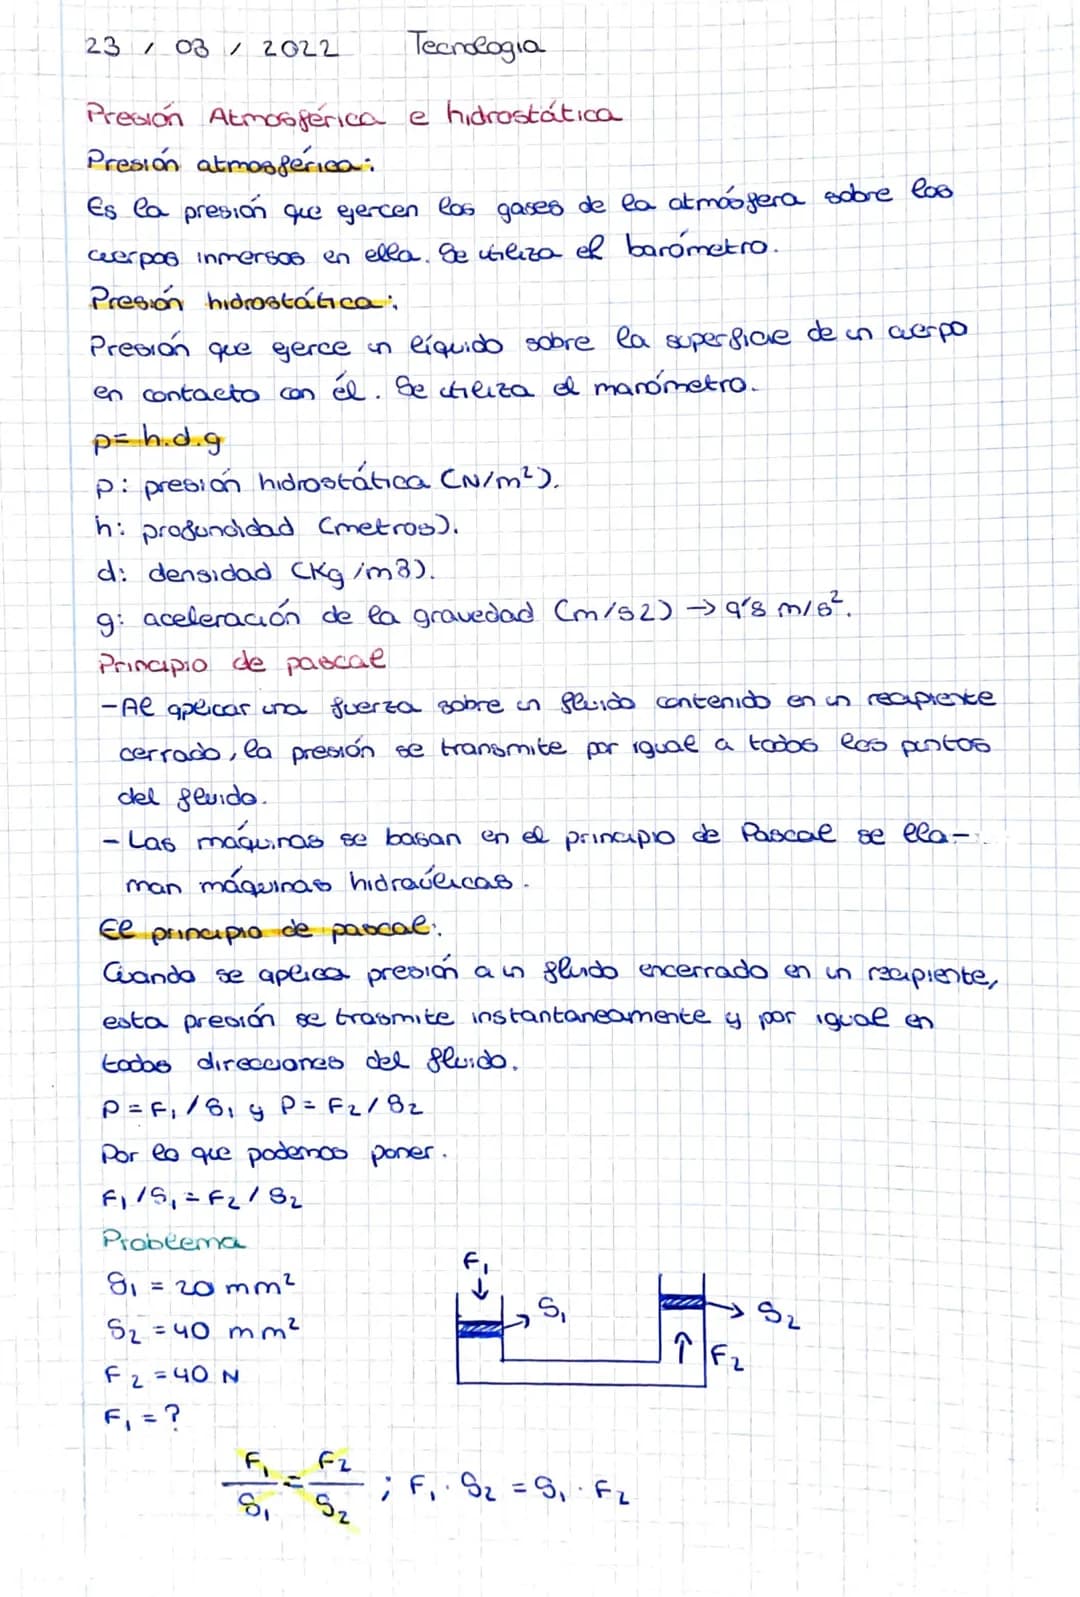 23 / 03 / 2022 Tecnología
Presión Atmosférica e hidrostática
Presión atmosférica:
Es la presión que ejercen los gases de la atmósfera sobre los
cuerpos inmersos en ella. Se utiliza el barómetro.
Presión hidrostática:
Presión que ejerce un líquido sobre la superficie de un cuerpo
en contacto con él. Se utiliza el manómetro.
p= h.d.g
p: presión hidrostática (N/m²).
h: profundidad (metros).
d: densidad (Kg/m3).
g: aceleración de la gravedad (m/s2) → 9'8 m/s².
Principio de pascal
-Al aplicar una fuerza sobre un fluido contenido en un recipiente
cerrado, la presión se transmite por igual a todos los puntos
del fluido.
- Las máquinas se basan en el principio de Pascal se lla-
man máquinas hidraúlicas.
El principio de pascal:
Cuando se aplica presión a un fluido encerrado en un recipiente,
esta presión se trasmite instantaneamente y por igual en
todas direcciones del fluido.
P = F₁ / S₁ y P = F₂ / S₂
Por lo que podemos poner.
F₁ / S₁ = F₂ / S₂
Problema
S₁ = 20 mm²
S₂ = 40 mm²
F₂ = 40 N
F₁ = ?
F₁ ↓
→ S₁
→ S₂
↑ F₂
F₁/S₁ = F₂/S₂ ; F₁ · S₂ = S₁ · F₂